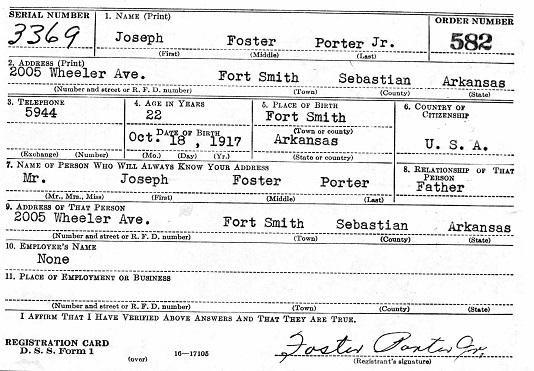 SERIAL NUMBER 1. NAME (Print) ORDER NUMBER
3369 Joseph Foster Porter Jr. 582
(First) (Middle) (Last)
2. ADDRESS (Print)
2005 Wheeler Ave. Fort Smith Sebastian Arkansas
(Number and street or R. F. D. number) (Town) (County) (State)
3. TELEPHONE 4. AGE IN YEARS 5. PLACE OF BIRTH 6. COUNTRY OF CITIZENSHIP
5944 22 Fort Smith
DATE OF BIRTH (Town or county)
Oct. 18, 1917 Arkansas U. S. A.
(Exchange) (Number) (Mo.) (Day) (Yr.) (State or country)
7. NAME OF PERSON WHO WILL ALWAYS KNOW YOUR ADDRESS 8. RELATIONSHIP OF THAT PERSON
Mr. Joseph Foster Porter Father
(Mr., Mrs., Miss) (First) (Middle) (Last)
9. ADDRESS OF THAT PERSON
2005 Wheeler Ave. Fort Smith Sebastian Arkansas
(Number and street or R. F. D. number) (Town) (County) (State)
10. EMPLOYER'S NAME
None
11. PLACE OF EMPLOYMENT OR BUSINESS
(Number and street or R. F. D. number) (Town) (County) (State)
I AFFIRM THAT I HAVE VERIFIED ABOVE ANSWERS AND THAT THEY ARE TRUE.
REGISTRATION CARD Foster Porter Jr.
D. S. S. Form 1 (over) 16—17105 (Registrant's signature)